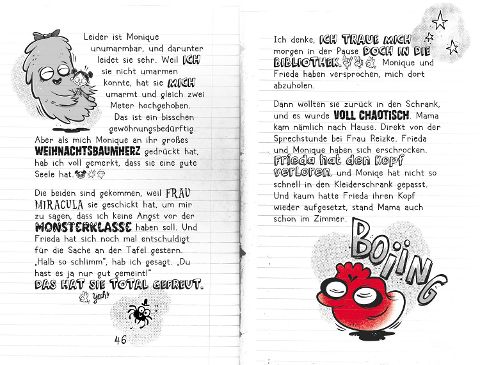 Leider ist Monique
unumarmbar, und darunter
leidet sie sehr. Weil ICH
sie nicht umarmen
konnte, hat sie MICH
umarmt und gleich zwei
Meter hochgehoben.
Das ist ein bisschen
gewöhnungsbedürftig.
Aber als mich Monique an ihr großes
WEIHNACHTSBAUMHERZ gedrückt hat,
hab ich voll gemerkt, dass sie eine gute
Seele hat.
Die beiden sind gekommen, weil FRAU
MIRACULA sie geschickt hat, um mir
zu sagen, dass ich keine Angst vor der
MONSTERKLASSE haben soll. Und
Frieda hat sich noch mal entschuldigt
für die Sache an der Tafel gestern.
„Halb so schlimm“, hab ich gesagt. „Du
hast es ja nur gut gemeint!“
DAS HAT SIE TOTAL GEFREUT.
yeah!
46
Ich denke, ICH TRAUE MICH
morgen in der Pause DOCH IN DIE
BIBLIOTHEK. Monique und
Frieda haben versprochen, mich dort
abzuholen.
Dann wollten sie zurück in den Schrank,
und es wurde VOLL CHAOTISCH. Mama
kam nämlich nach Hause. Direkt von der
Sprechstunde bei Frau Reizke. Frieda
und Monique haben sich erschrocken.
Frieda hat den Kopf
verloren, und Moniqe hat nicht so
schnell in den Kleiderschrank gepasst.
Und kaum hatte Frieda ihren Kopf
wieder aufgesetzt, stand Mama auch
schon im Zimmer.
BOIING